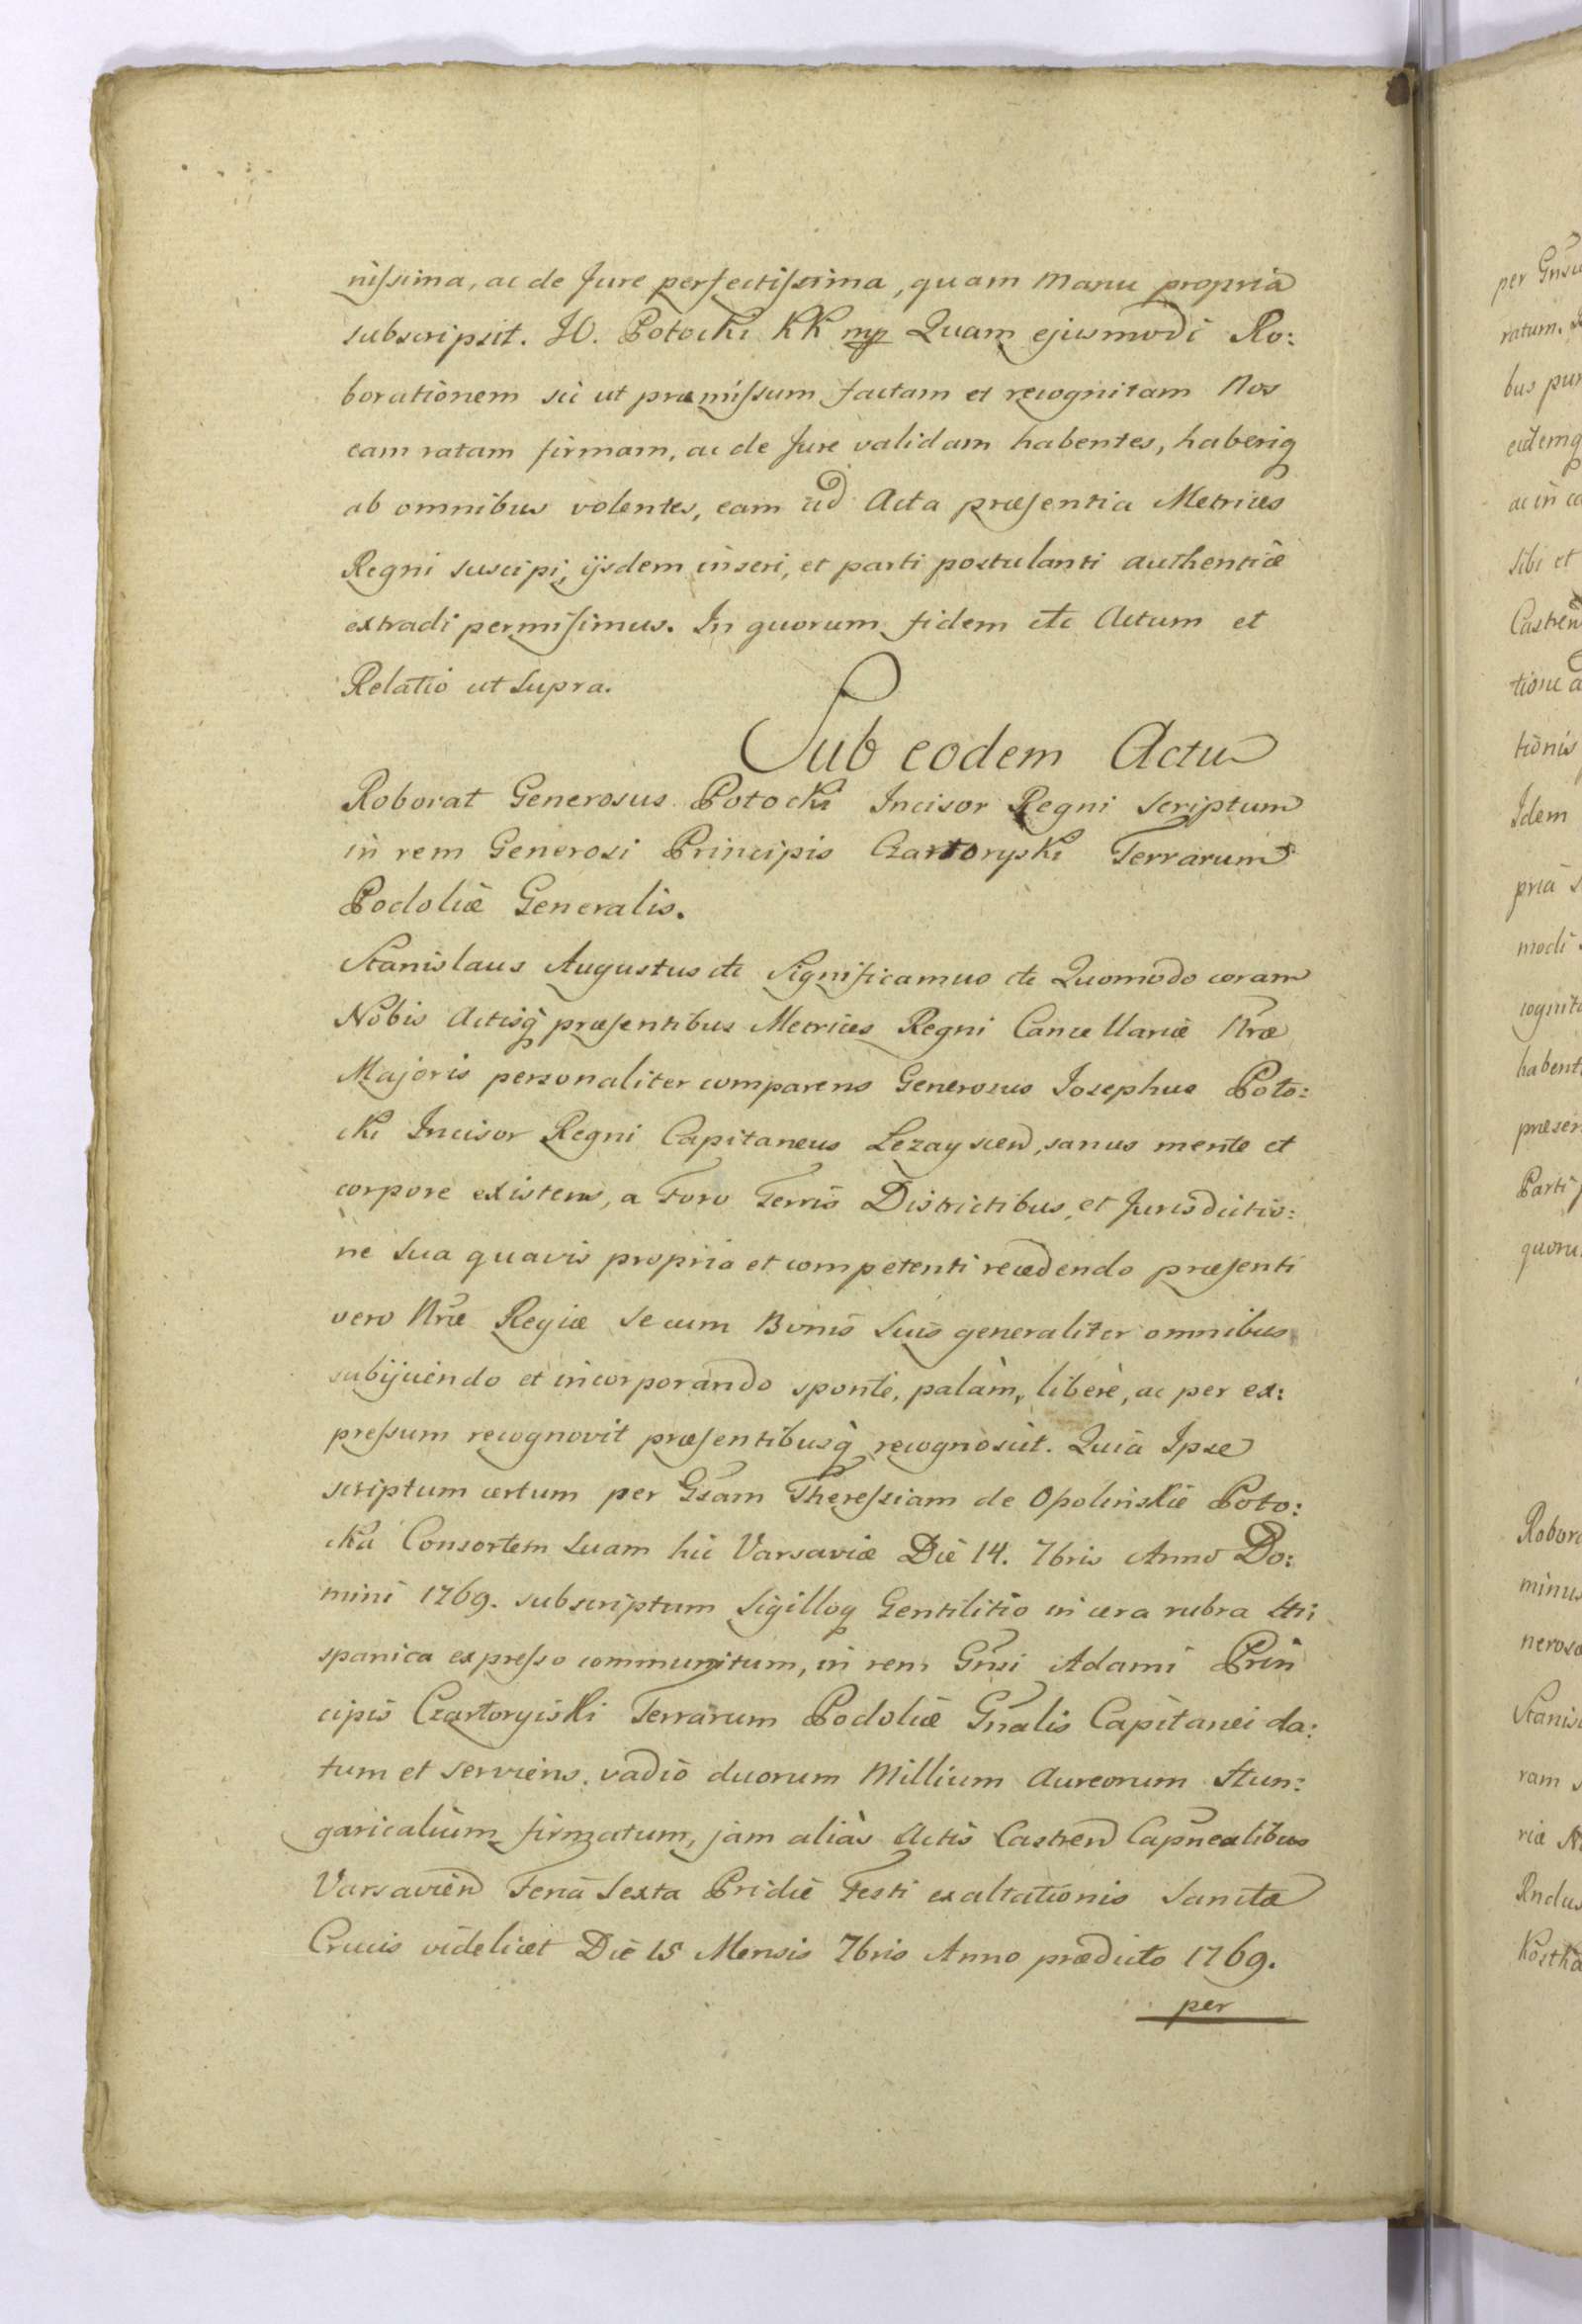 nissima, ac de Jure perfectissima, quam manu propria
subscripsit. JO. Potocki KK mp Quam ejusmodi Ro:
borationem sic ut præmissum factam et recognitam Nos
eam ratam firmam, ac de Jure validam habentes, haberiq
ab omnibus volentes, eam ad Acta præsentia Metrices
Regni suscipi, ijsdem inseri, et parti postulanti authenticè
extradi permisimus. In quorum fidem etc Actum et
Relatio ut Supra.
Sub eodem Actu
Roborat Generosus Potocki Incisor Regni Scriptum
in rem Generosi Principis Czartoryski Terrarum
Podoliæ Generalis.
Stanislaus Augustus etc Significamus etc Quomodo coram
Nobis Actisq præsentibus Metrices Regni Cancellariæ Nræ
Majoris personaliter comparens Generosus Josephus Poto:
cki Incisor Regni Capitaneus Lezayscen, sanus mente et
corpore existens, a Foro Terris Districtibus, et Jurisdictio:
ne Sua quavis propria et competenti recedendo præsenti
vero Nræ Regiæ Se cum Bonis Suis generaliter omnibus
subijciendo et incorporando sponte, palàm, liberè, ac per ex:
pressum recognovit præsentibusq recognoscit. Quia Ipse
scriptum certum per Gsam Theressiam de Opolinskie Poto:
cka Consortem Suam hic Varsaviæ Die 14. 7bris Anno Do:
mini 1769. subscriptum Sigilloq Gentilitio in cera rubra Hi:
spanica expresso communitum, in rem Gnsi Adami Prin
cipis Czartoryiski Terrarum Podoliæ Gnalis Capitanei da:
tum et serviens. vadio duorum Millium Aureorum Hun:
garicalium firmatum, jam aliàs Actis Castren Capnealibus
Varsavien Feria Sexta Pridie Festi exaltationis Sanctæ
Crucis videlicet Die 15 Mensis 7bris Anno prædicto 1769.
per
per Gnsu
ratum.
bus pu
eidemq
ac in co
sibi et
Castren
tione a
tionis
Idem
pria s
modi
cognita
habent
præsen
Parti
quoru
Robora
minus
neroso
Stanis
ram s
riæ N
Rndus
Kostka